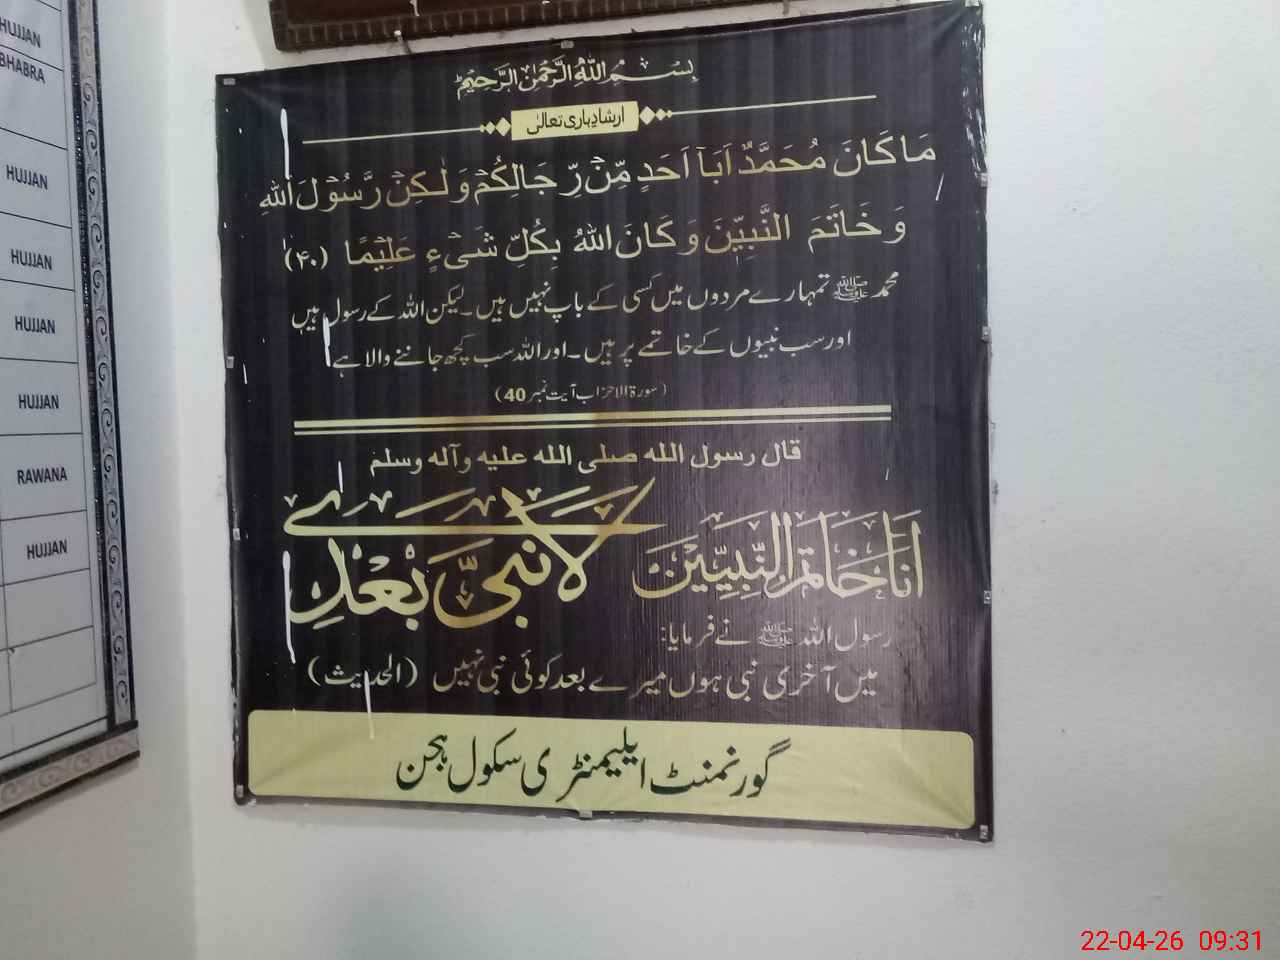 HUJJAN
BHABRA
HUJJAN
HUJJAN
HUJJAN
HUJJAN
RAWANA
HUJJAN
بِسْمِ اللهِ الرَّحْمٰنِ الرَّحِيْمِ
ارشاد باری تعالیٰ
مَا كَانَ مُحَمَّدٌ اَبَآ اَحَدٍ مِّنْ رِّجَالِكُمْ وَلٰكِنْ رَّسُوْلَ اللهِ
وَ خَاتَمَ النَّبِيّٖنَ وَ كَانَ اللهُ بِكُلِّ شَیْءٍ عَلِيْمًا (۴۰)
محمد ﷺ تمہارے مردوں میں کسی کے باپ نہیں ہیں۔ لیکن اللہ کے رسول ہیں
اور سب نبیوں کے خاتمے پر ہیں۔ اور اللہ سب کچھ جاننے والا ہے
(سورة الاحزاب آیت نمبر 40)
قال رسول الله صلى الله عليه وآله وسلم
اَنَا خَاتَمُ النَّبِيِّيْنَ لَا نَبِيَّ بَعْدِي
رسول اللہ ﷺ نے فرمایا:
میں آخری نبی ہوں میرے بعد کوئی نبی نہیں (الحدیث)
گورنمنٹ ایلیمنٹری سکول ہجن
22-04-26 09:31